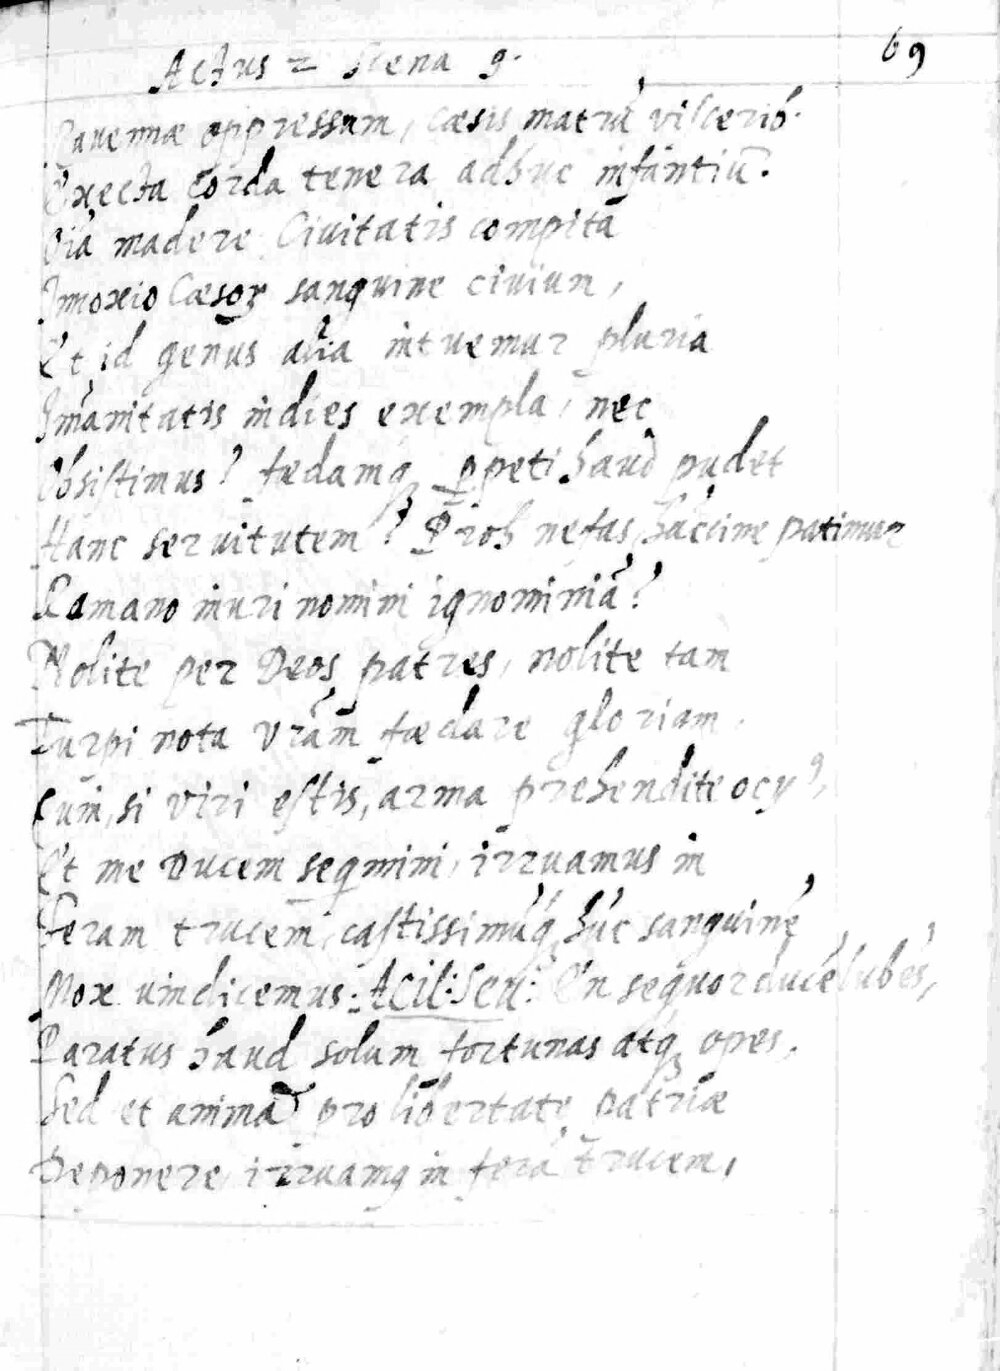 Actus 2 Scena 9.
69
Rauennæ oppressum, cæsis matrũ viscerib᾽.
Execta corda tenera adhuc infantiũ.
Oĩa madere Ciuitatis compita
Innoxio Cæsor sanguine ciuium,
Et id genus alia intuemur pluria
Im̃anitatis indies exempla, nec
Obsistimus? fædamq; ꝑpeti haud pudet
Hanc seruitutem? Proh nefas, hãccine patimur
Romano inuri nomini ignominiã?
Nolite per Deos patres, nolite tam
Turpi nota vr̃am fœdare gloriam.
Quin, si viri estis, arma prehendite ocyꝰ,
Et me Ducem seqimini, irruamus in
Feram trucem, castissimũq; hũc sanguinẽ
Mox uindicemus. Acil: Seu: En sequor ducẽ lubẽs,
Paratus haud solum fortunas atq; opes,
Sed et animã pro libertate patriæ
Deponere, irruamꝰ in ferã trucem,